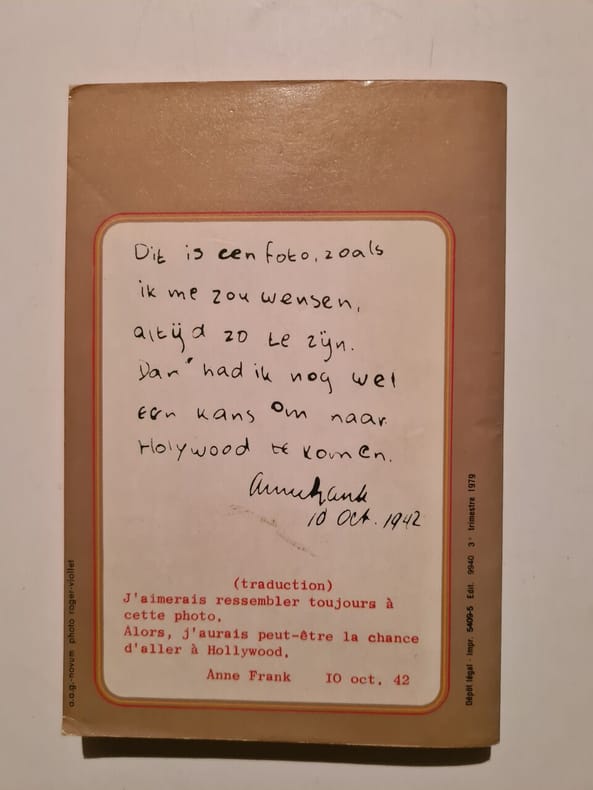 Dit is een foto, zoals
ik me zou wensen,
altijd zo te zijn.
Dan had ik nog wel
een kans om naar
Holywood te komen.
Anne Frank
10 Oct. 1942
(traduction)
J'aimerais ressembler toujours à
cette photo.
Alors, j'aurais peut-être la chance
d'aller à Hollywood.
Anne Frank IO oct. 42
a.a.g.-novum photo roger-viollet
Dépôt légal - Impr. 5409-5 Edit. 9940 3° trimestre 1979